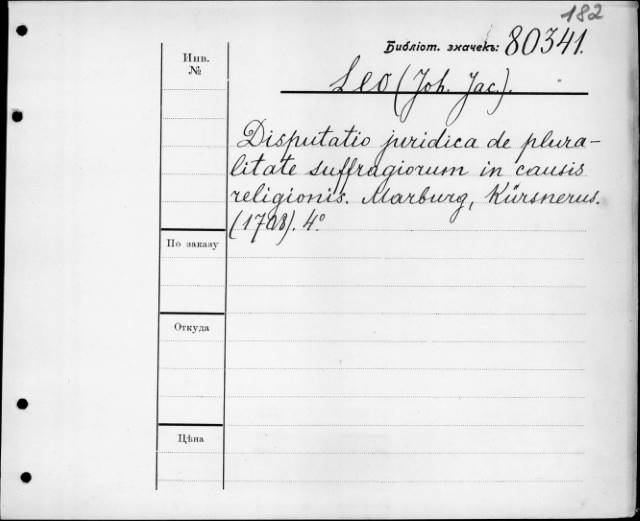 182
Библіот. значекъ: 80341.
Инв.
№
Leo (Joh. Jac.).
Disputatio juridica de plura-
litate suffragiorum in causis
religionis. Marburg, Kürsnerus.
(1708). 4°
По заказу
Откуда
Цѣна